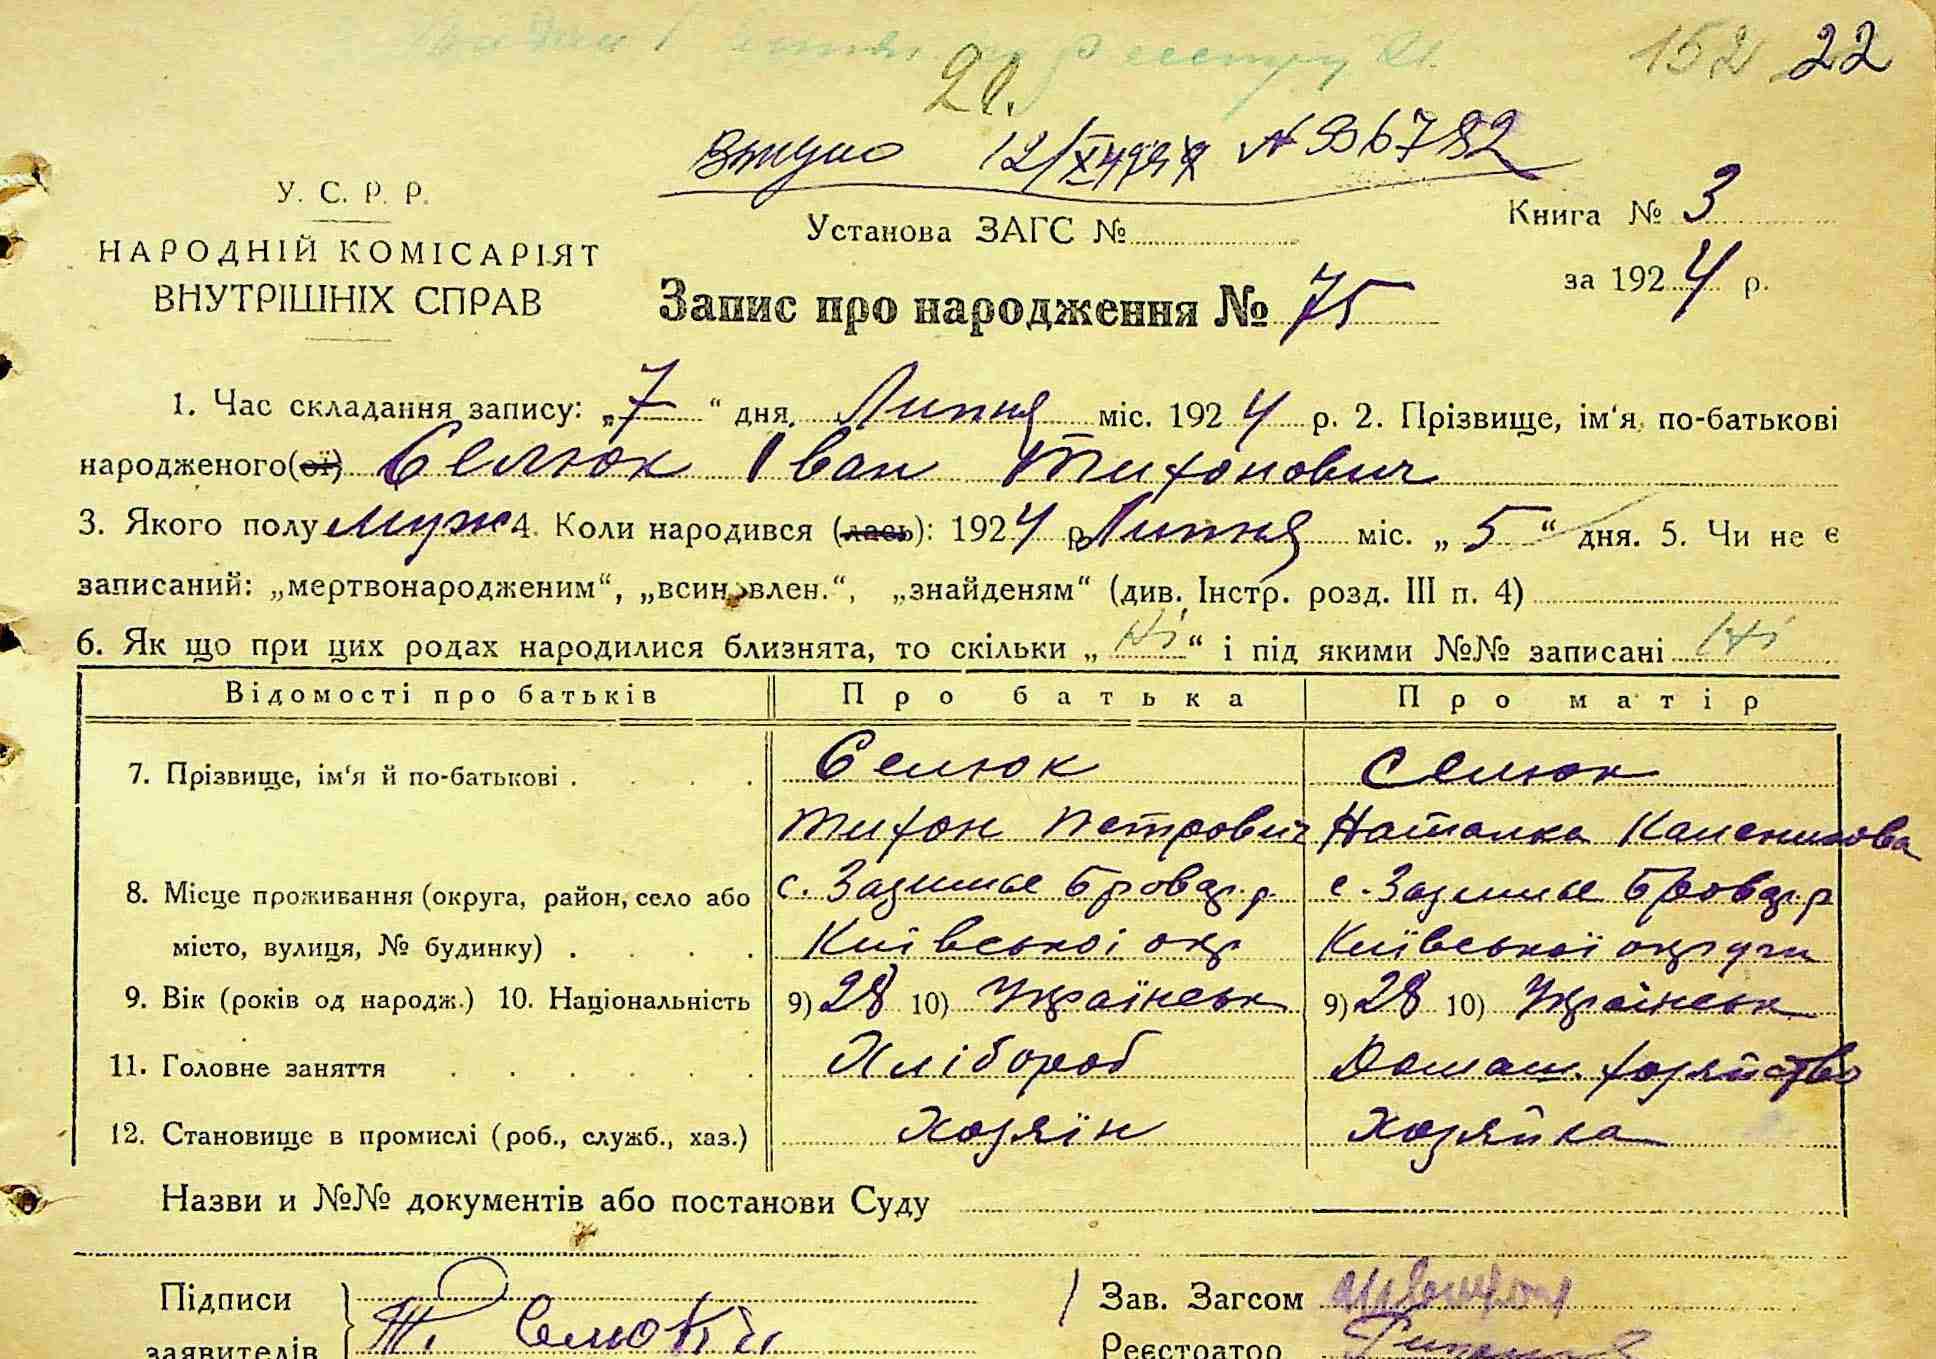 152 22
21.
12/ № 936782
У. С. Р. Р.
НАРОДНІЙ КОМІСАРІЯТ
ВНУТРІШНІХ СПРАВ
Установа ЗАГС №
Книга № 3
за 1924 р.
Запис про народження № 75
1. Час складання запису: „7“ дня Липня міс. 1924 р. 2. Прізвище, ім‘я, по-батькові
народженого(ої) Селюк Іван Тихонович
3. Якого полу муж 4. Коли народився (лась): 1924 р. Липня міс. „5“ дня. 5. Чи не є
записаний: „мертвонародженим“, „всиновлен.“, „знайденям“ (див. Інстр. розд. III п. 4)
6. Як що при цих родах народилися близнята, то скільки „Ні“ і під якими №№ записані Ні
Відомості про батьків Про батька Про матір
7. Прізвище, ім‘я й по-батькові . . . . Селюк Селюк
Тихон Петрович Наталка
8. Місце проживання (округа, район, село або с. Зазимье Бровар. р с. Зазимье Бровар. р
місто, вулиця, № будинку) . . . . Київської окр Київської округи
9. Вік (років од народж.) 10. Національність 9) 28 10) Українськ 9) 28 10) Українськ
11. Головне заняття . . . . . Хлібороб Домаш. хозяйство
12. Становище в промислі (роб., служб., хаз.) Хозяїн Хозяйка
Назви и №№ документів або постанови Суду
Підписи
Зав. Загсом
заявителів Т. Селюк
Реєстратор